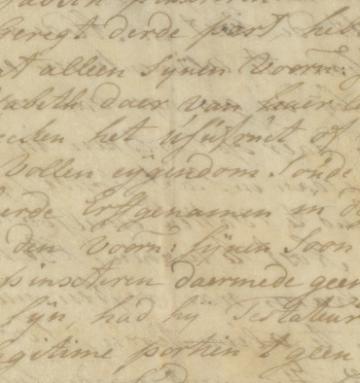 geregt derde part heb
at alleen Sijnen Voorn:
abeth daer van haer
het üsüfrüct of
Vollen eijgendom Soüde
erde Erfgenamen in d
den Voorn: Sijnen Soon
insteren daermede geen
Sijn, had hij Testateur
egitime portien t geen